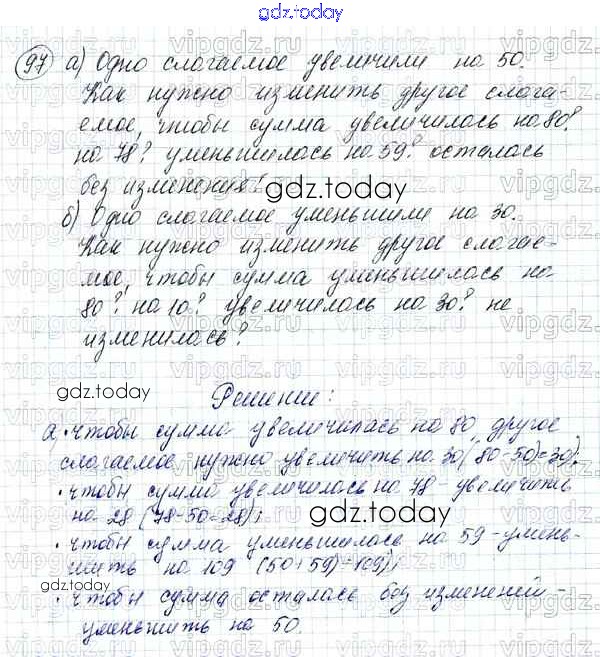 gdz.today
97 а) Одно слагаемое увеличили на 50.
Как нужно изменить другое слага-
емое, чтобы сумма увеличилось на 80?
на 78? уменьшилась на 59? осталась
без изменения?
gdz.today
б) Одно слагаемое уменьшили на 30.
Как нужно изменить другое слагае-
мое, чтобы сумма уменьшилась на
80? на 10? увеличилась на 30? не
изменилась?
gdz.today
Решение:
а) • чтобы сумма увеличилась на 80, другое
слагаемое нужно увеличить на 30 (80-50)=30);
• чтобы сумма увеличилась на 78 - увеличить
на 28 (78-50=28);
gdz.today
• чтобы сумма уменьшилась на 59 - умень-
шить на 109 (50+59)=109);
gdz.today
• чтобы сумма осталась без изменений -
уменьшить на 50.